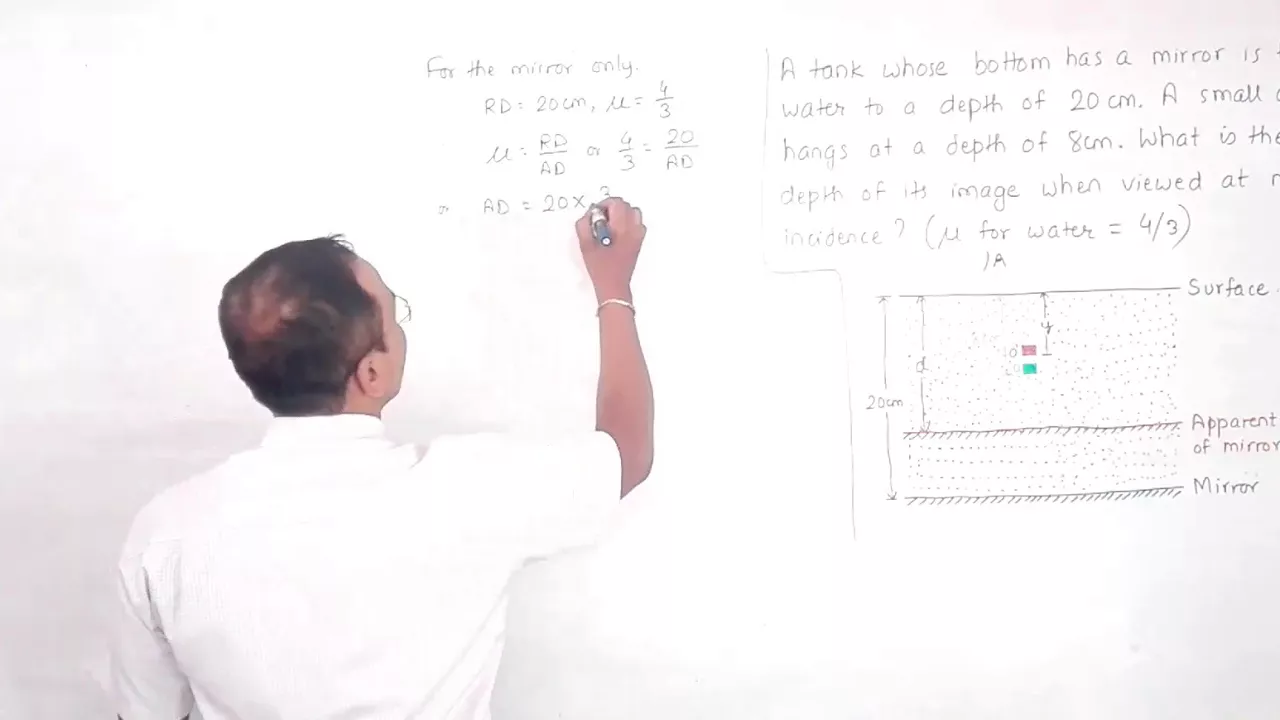 For the mirror only.
RD = 20cm, μ = 4/3
μ = RD/AD or 4/3 = 20/AD
or AD = 20 × 3
A tank whose bottom has a mirror is
water to a depth of 20 cm. A small
hangs at a depth of 8cm. What is the
depth of its image when viewed at
incidence? (μ for water = 4/3)
A
Surface
y
O
d
20cm
Apparent
of mirror
Mirror